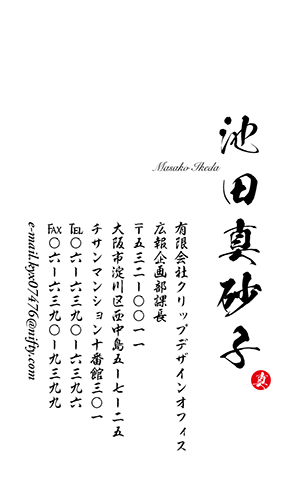 池田真砂子
Masako Ikeda
真
有限会社クリップデザインオフィス
広報企画部課長
〒五三二-〇〇一一
大阪市淀川区西中島五-七-二五
チサンマンション十番館三〇一
TEL〇六-六三九〇-六三九六
FAX〇六-六三九〇-九三九九
e-mail.kyx07476@nifty.com